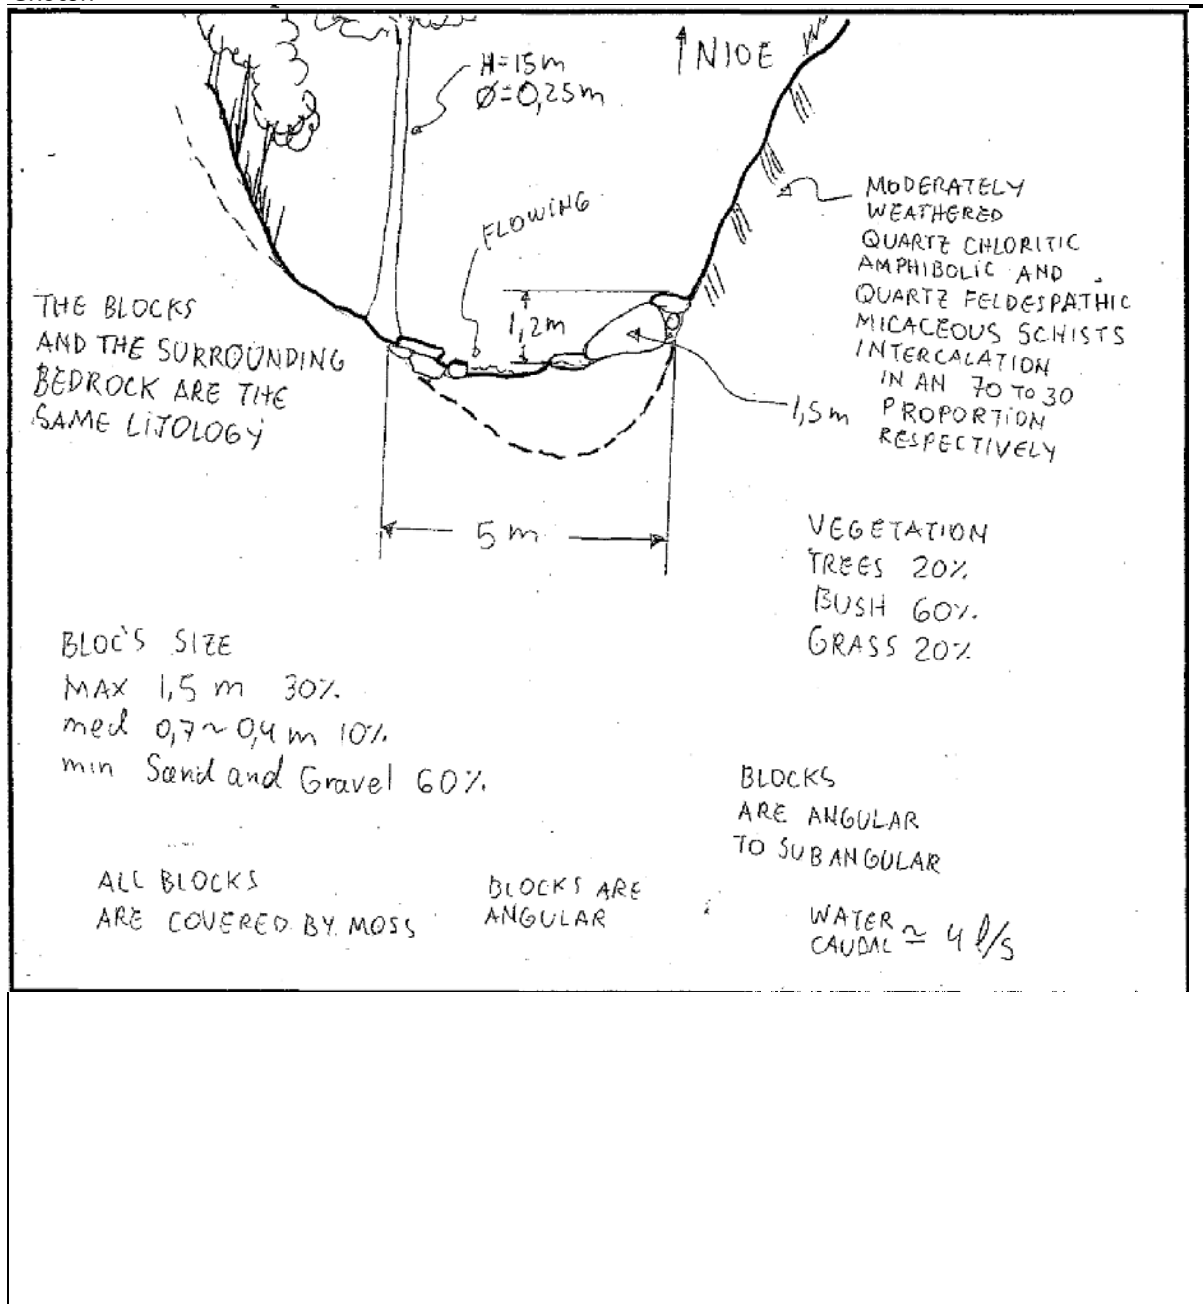 N10E
H=15m
Ø=0,25m
FLOWING
MODERATELY
WEATHERED
QUARTZ CHLORITIC
AMPHIBOLIC AND
QUARTZ FELDESPATHIC
MICACEOUS SCHISTS
INTERCALATION
IN AN 70 TO 30
PROPORTION
RESPECTIVELY
THE BLOCKS
AND THE SURROUNDING
BEDROCK ARE THE
SAME LITOLOGY
1,2m
1,5m
5 m
VEGETATION
TREES 20%
BUSH 60%
GRASS 20%
BLOC'S SIZE
MAX 1,5 m 30%
med 0,7~0,4 m 10%
min Sand and Gravel 60%
BLOCKS
ARE ANGULAR
TO SUBANGULAR
ALL BLOCKS
ARE COVERED BY MOSS
BLOCKS ARE
ANGULAR
WATER
CAUDAL ≃ 4 l/s